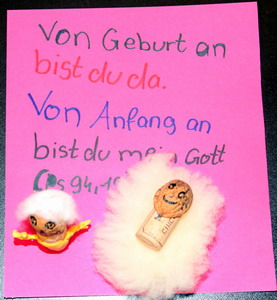 Von Geburt an
bist du da.
Von Anfang an
bist du mein Gott
(Ps 94,1